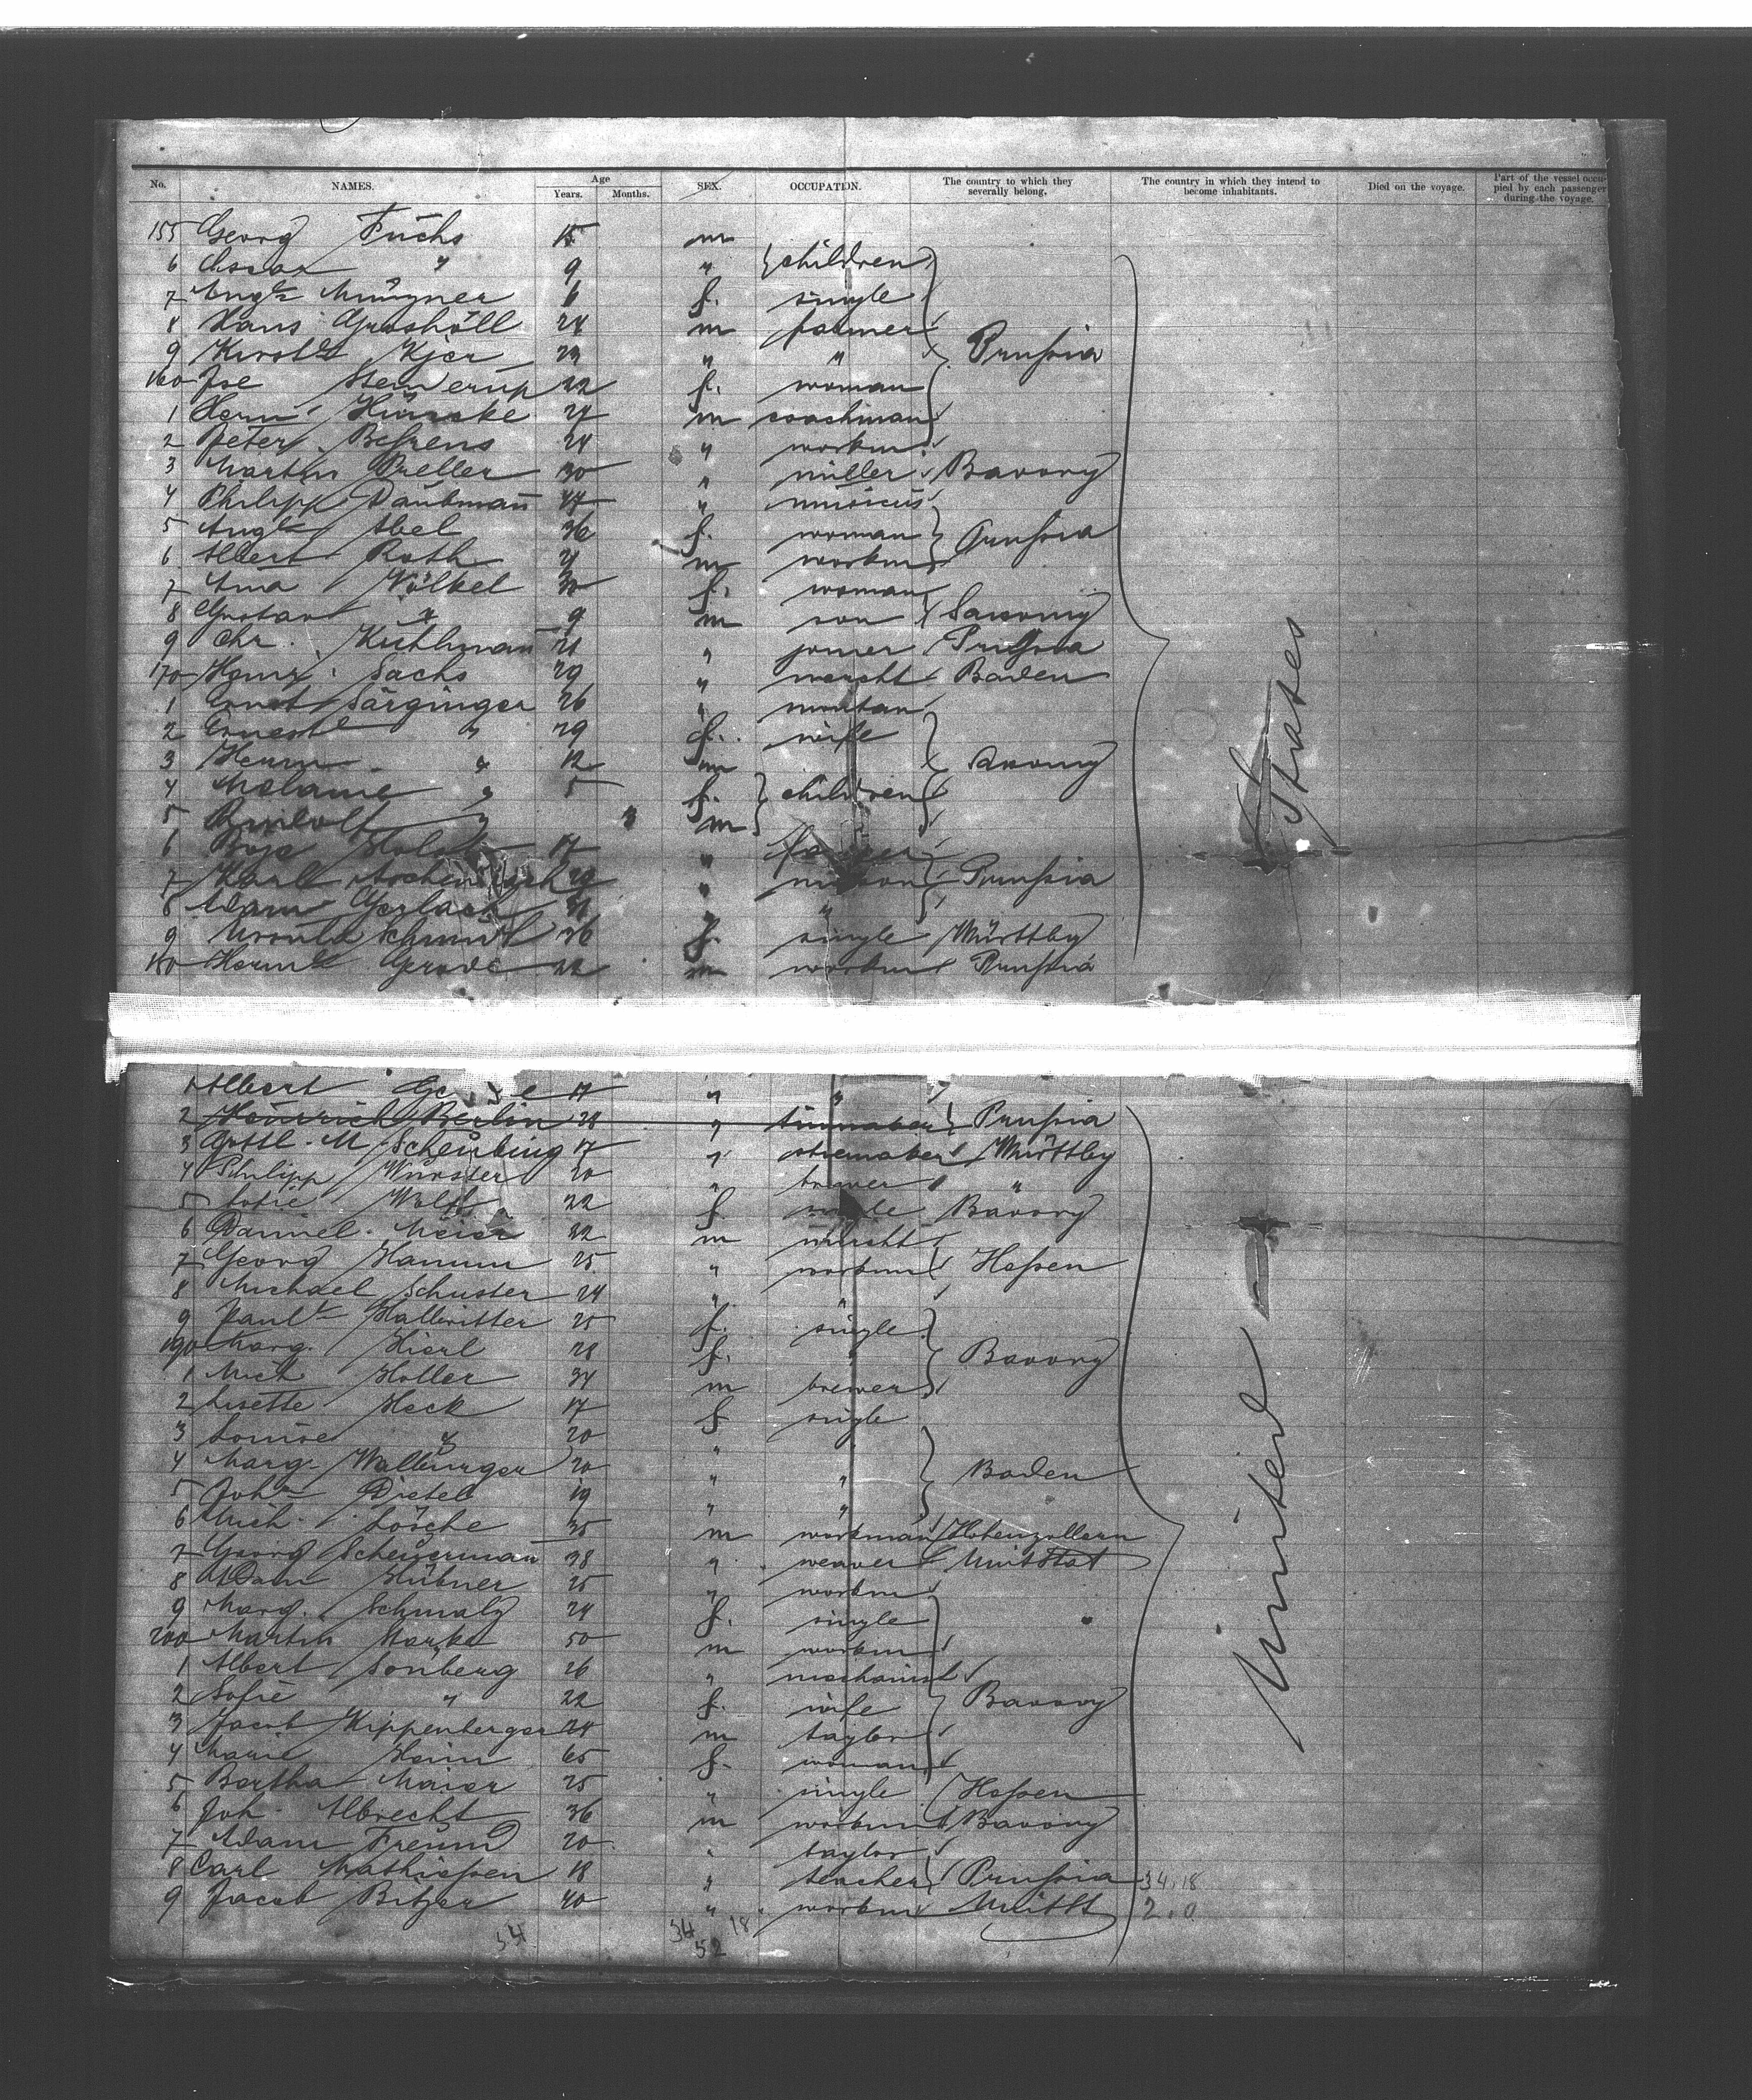 No. NAMES. Age Years. Months. SEX. OCCUPATION. The country to which they severally belong. The country in which they intend to become inhabitants. Died on the voyage. Part of the vessel occupied by each passenger during the voyage.
155 Georg Fuchs 15 m
6 Oscar " 9 " } children
7 6 f. single
8 Hans Groshöll 24 m farmer
9 Kjer 23 " " Prussia
160 22 f. woman
1 Herm. 27 m coachman
2 Peter Behrens 24 " workm
3 Martin Preller 30 " miller Bavary
4 Philipp Daubmañ 47 " musicus
5 Augte Abel 36 f. woman } Prussia
6 Albert Roth 21 m workm
7 Ama Völkel 30 f. woman
8 Gustav " 9 m son Saxony
9 Chr. Kuthmañ 21 " joiner Prussia
170 Heinr. Sachs 29 " mercht Baden
1 Ernst Särginger 26 "
2 Ernest " 29 f. wife
3 Herm " 12 m Saxony
4 Melanie " 5 f. } children
5 " 3 m
6 Boje 17 " farmer
7 Karl 29 " mason Prussia
8 Adam Gerlach 31 " "
9 Ursula Schmidt 36 f. single Württbg
180 Hermn Gerode 22 m workm Prussia
1 Albert 17 " "
2 Heinrich Berlin 28 " Prussia
3 Gottl. M. Scheubing 17 " shemaker Württbg
4 Philipp Wurster 20 " brewer "
5 Sofie Wolf 22 f. single Bavary
6 Daniel Meier 22 m mercht
7 Georg Hamm 25 " workm Hessen
8 Michael Schuster 24 " "
9 Paule Hallritter 25 f. single
190 Marg. Hierl 28 f. " Bavary
1 Mich Holler 34 m brewer
2 Lisette Heck 17 f single
3 Louise " 20 " "
4 Marg. Wallburger 20 " " Baden
5 Joh. Dietel 19 " "
6 Mich. Lösche 35 m workman Hohenzollern
7 Georg Scheuermañ 38 " weaver Unit Stat
8 Adam Hübner 25 " workm
9 Marg. Schmalz 24 f. single
200 Martin Starke 50 m workm
1 Albert Soñberg 26 " mechanist
2 Sofie " 22 f. wife Bavary
3 Jacob Kippenberger 24 m taylor
4 Marie Heim 65 f. woman
5 Bertha Maier 25 " single Hessen
6 Joh. Albrecht 36 m workm Bavary
7 Adam Freund 20 " taylor
8 Carl Mathiessen 18 " teacher Prussia 34.18
9 Jacob Bitzer 40 " workm 2.0
34 34 18
52
United States